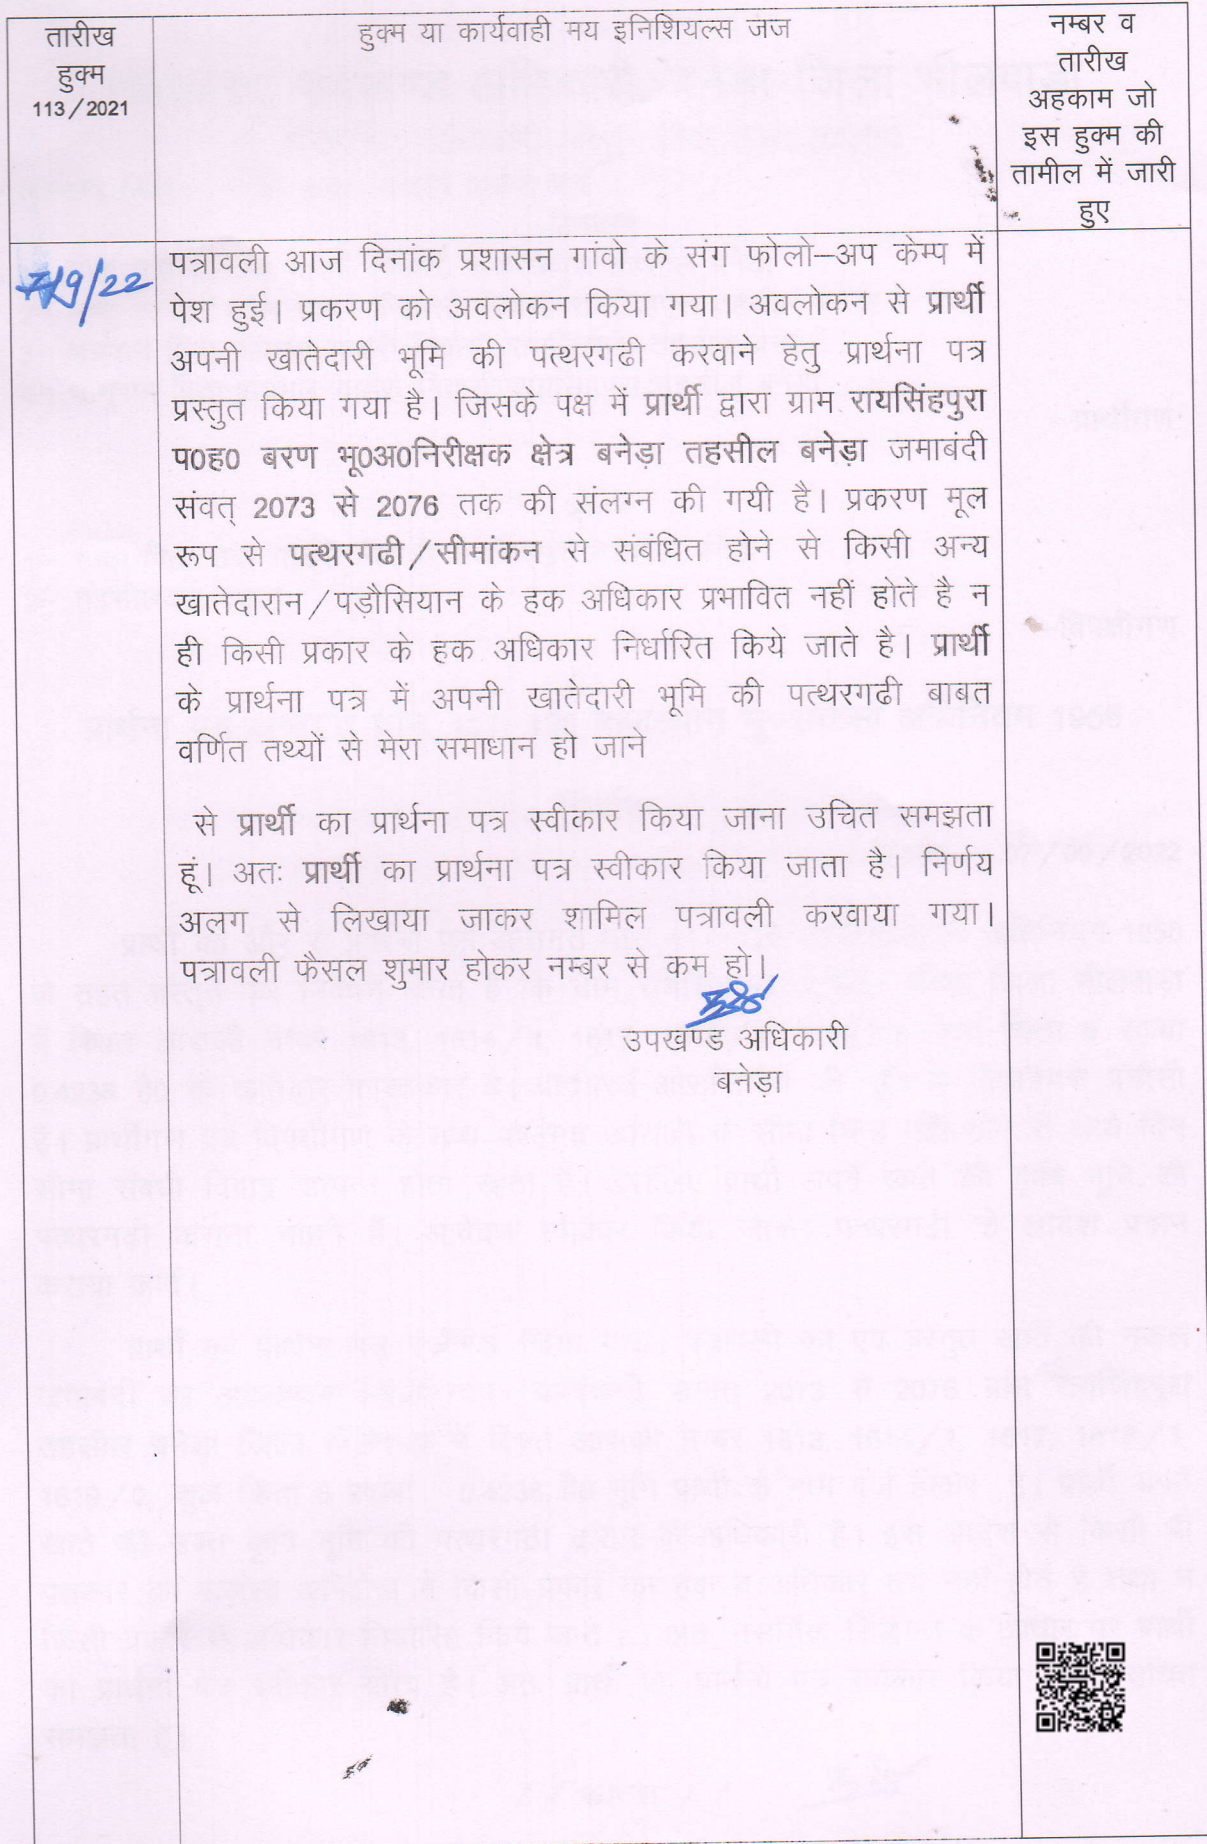 तारीख
हुक्म
113/2021
हुक्म या कार्यवाही मय इनिशियल्स जज
नम्बर व
तारीख
अहकाम जो
इस हुक्म की
तामील में जारी
हुए
7/9/22
पत्रावली आज दिनांक प्रशासन गांवो के संग फोलो–अप केम्प में
पेश हुई। प्रकरण को अवलोकन किया गया। अवलोकन से प्रार्थी
अपनी खातेदारी भूमि की पत्थरगढी करवाने हेतु प्रार्थना पत्र
प्रस्तुत किया गया है। जिसके पक्ष में प्रार्थी द्वारा ग्राम रायसिंहपुरा
प0ह0 बरण भू0अ0निरीक्षक क्षेत्र बनेड़ा तहसील बनेड़ा जमाबंदी
संवत् 2073 से 2076 तक की संलग्न की गयी है। प्रकरण मूल
रूप से पत्थरगढी/सीमांकन से संबंधित होने से किसी अन्य
खातेदारान/पड़ौसियान के हक अधिकार प्रभावित नहीं होते है न
ही किसी प्रकार के हक अधिकार निर्धारित किये जाते है। प्रार्थी
के प्रार्थना पत्र में अपनी खातेदारी भूमि की पत्थरगढी बाबत
वर्णित तथ्यों से मेरा समाधान हो जाने
से प्रार्थी का प्रार्थना पत्र स्वीकार किया जाना उचित समझता
हूं। अतः प्रार्थी का प्रार्थना पत्र स्वीकार किया जाता है। निर्णय
अलग से लिखाया जाकर शामिल पत्रावली करवाया गया।
पत्रावली फैसल शुमार होकर नम्बर से कम हो।
उपखण्ड अधिकारी
बनेड़ा